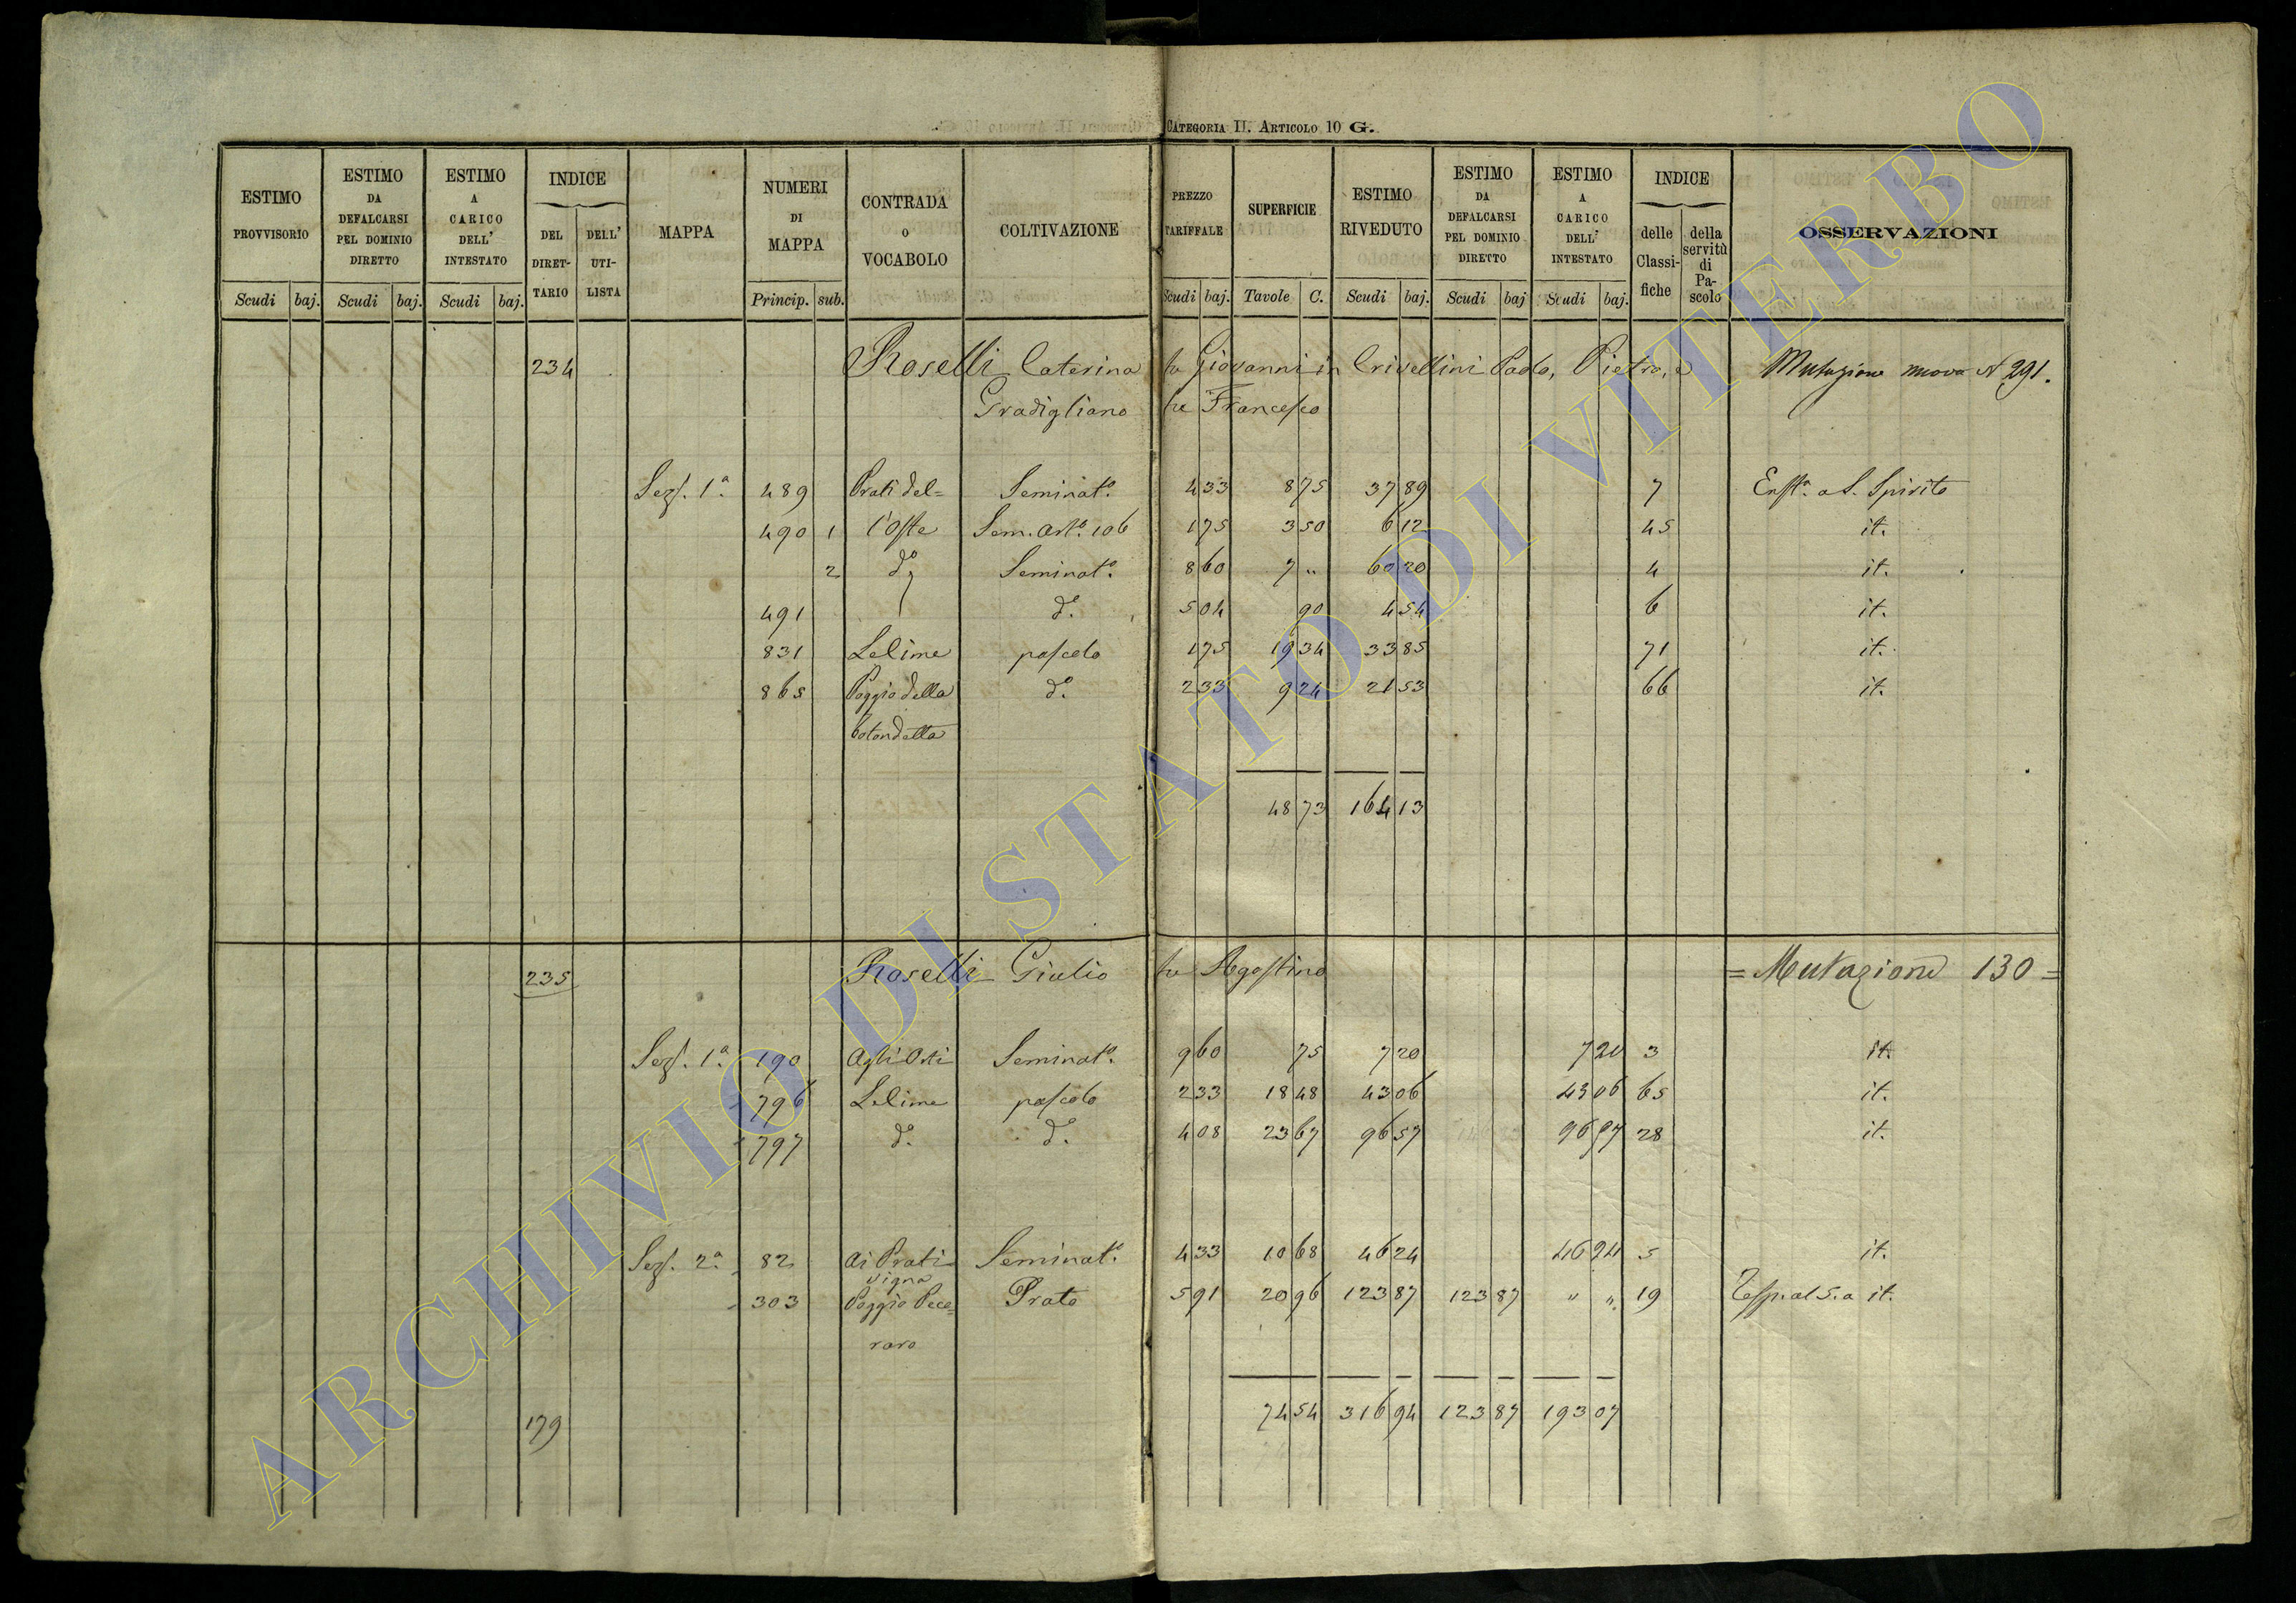 CATEGORIA II. ARTICOLO 10 G.
ESTIMO PROVVISORIO | ESTIMO DA DEFALCARSI PEL DOMINIO DIRETTO | ESTIMO A CARICO DELL' INTESTATO | INDICE DEL DIRET-TARIO | DELL' UTI-LISTA | MAPPA | NUMERI DI MAPPA | CONTRADA O VOCABOLO | COLTIVAZIONE | PREZZO TARIFFALE | SUPERFICIE | ESTIMO RIVEDUTO | ESTIMO DA DEFALCARSI PEL DOMINIO DIRETTO | ESTIMO A CARICO DELL' INTESTATO | INDICE delle Classi-fiche | della servitù di Pa-scolo | OSSERVAZIONI
Scudi baj. Scudi baj. Scudi baj. Princip. sub. Scudi baj. Tavole C. Scudi baj. Scudi baj Scudi baj.
234 Roselli Caterina fu Giovanni in Crivellini Paolo, Pietro, e Mutazione nuova N 291.
Gradigliano fu Francesco
Sez. 1ª. 489 Prati del= Seminatº. 4 33 8 75 37 89 7 Enftª. a S. Spirito
490 1 l'Oste Sem. Artº. 106 1 75 3 50 6 12 45 it.
2 dº Seminatº. 8 60 7 " 60 20 4 it.
491 dº. 5 04 90 4 54 6 it.
831 Le lime pascolo 1 75 19 34 33 85 71 it.
865 Poggio della dº. 2 33 9 24 21 53 66 it.
48 73 164 13
235 Roselli Giulio fu Agostino = Mutazione 130 =
Sez. 1ª. 190 Agli Orti Seminatº. 9 60 75 7 20 7 20 3 it.
796 Le lime pascolo 2 33 18 48 43 06 43 06 65 it.
797 dº. dº. 4 08 23 67 96 57 96 57 28 it.
Sez. 2ª. 82 Ai Prati Seminatº. 4 33 10 68 46 24 46 24 5 it.
vigna
303 Poggio Peco= Prato 5 91 20 96 123 87 123 87 " " 19 it.
raro
74 54 316 94 123 87 193 07
179
ARCHIVIO DI STATO DI VITERBO